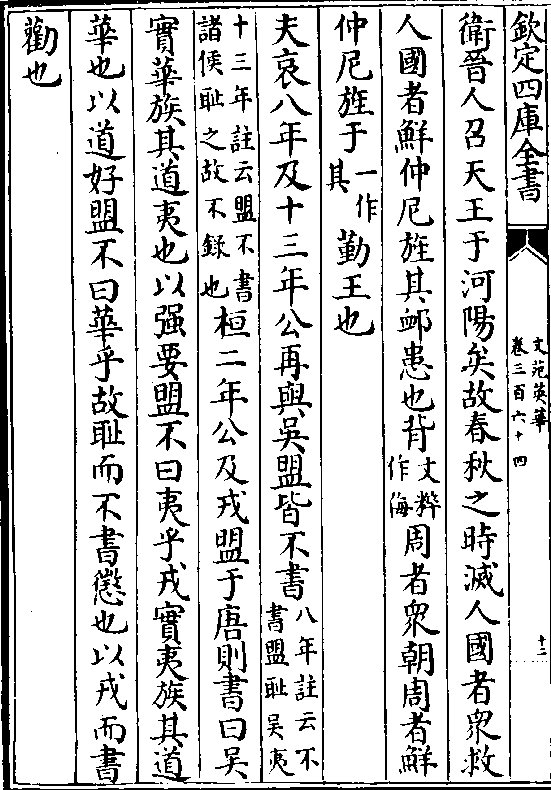 欽定四庫全書
文苑英華
卷三百六十四
十二
衛晉人召天王于河陽矣故春秋之時滅人國者衆救
人國者鮮仲尼旌其䘏患也背文粹作侮周者衆朝周者鮮
仲尼旌于一作其勤王也
夫哀八年及十三年公再與吳盟皆不書八年註云不書盟耻吳夷
十三年註云盟不書諸侯耻之故不錄也桓二年公及戎盟于唐則書曰吳
實華族其道夷也以强要盟不曰夷乎戎實夷族其道
華也以道好盟不曰華乎故耻而不書懲也以戎而書
勸也